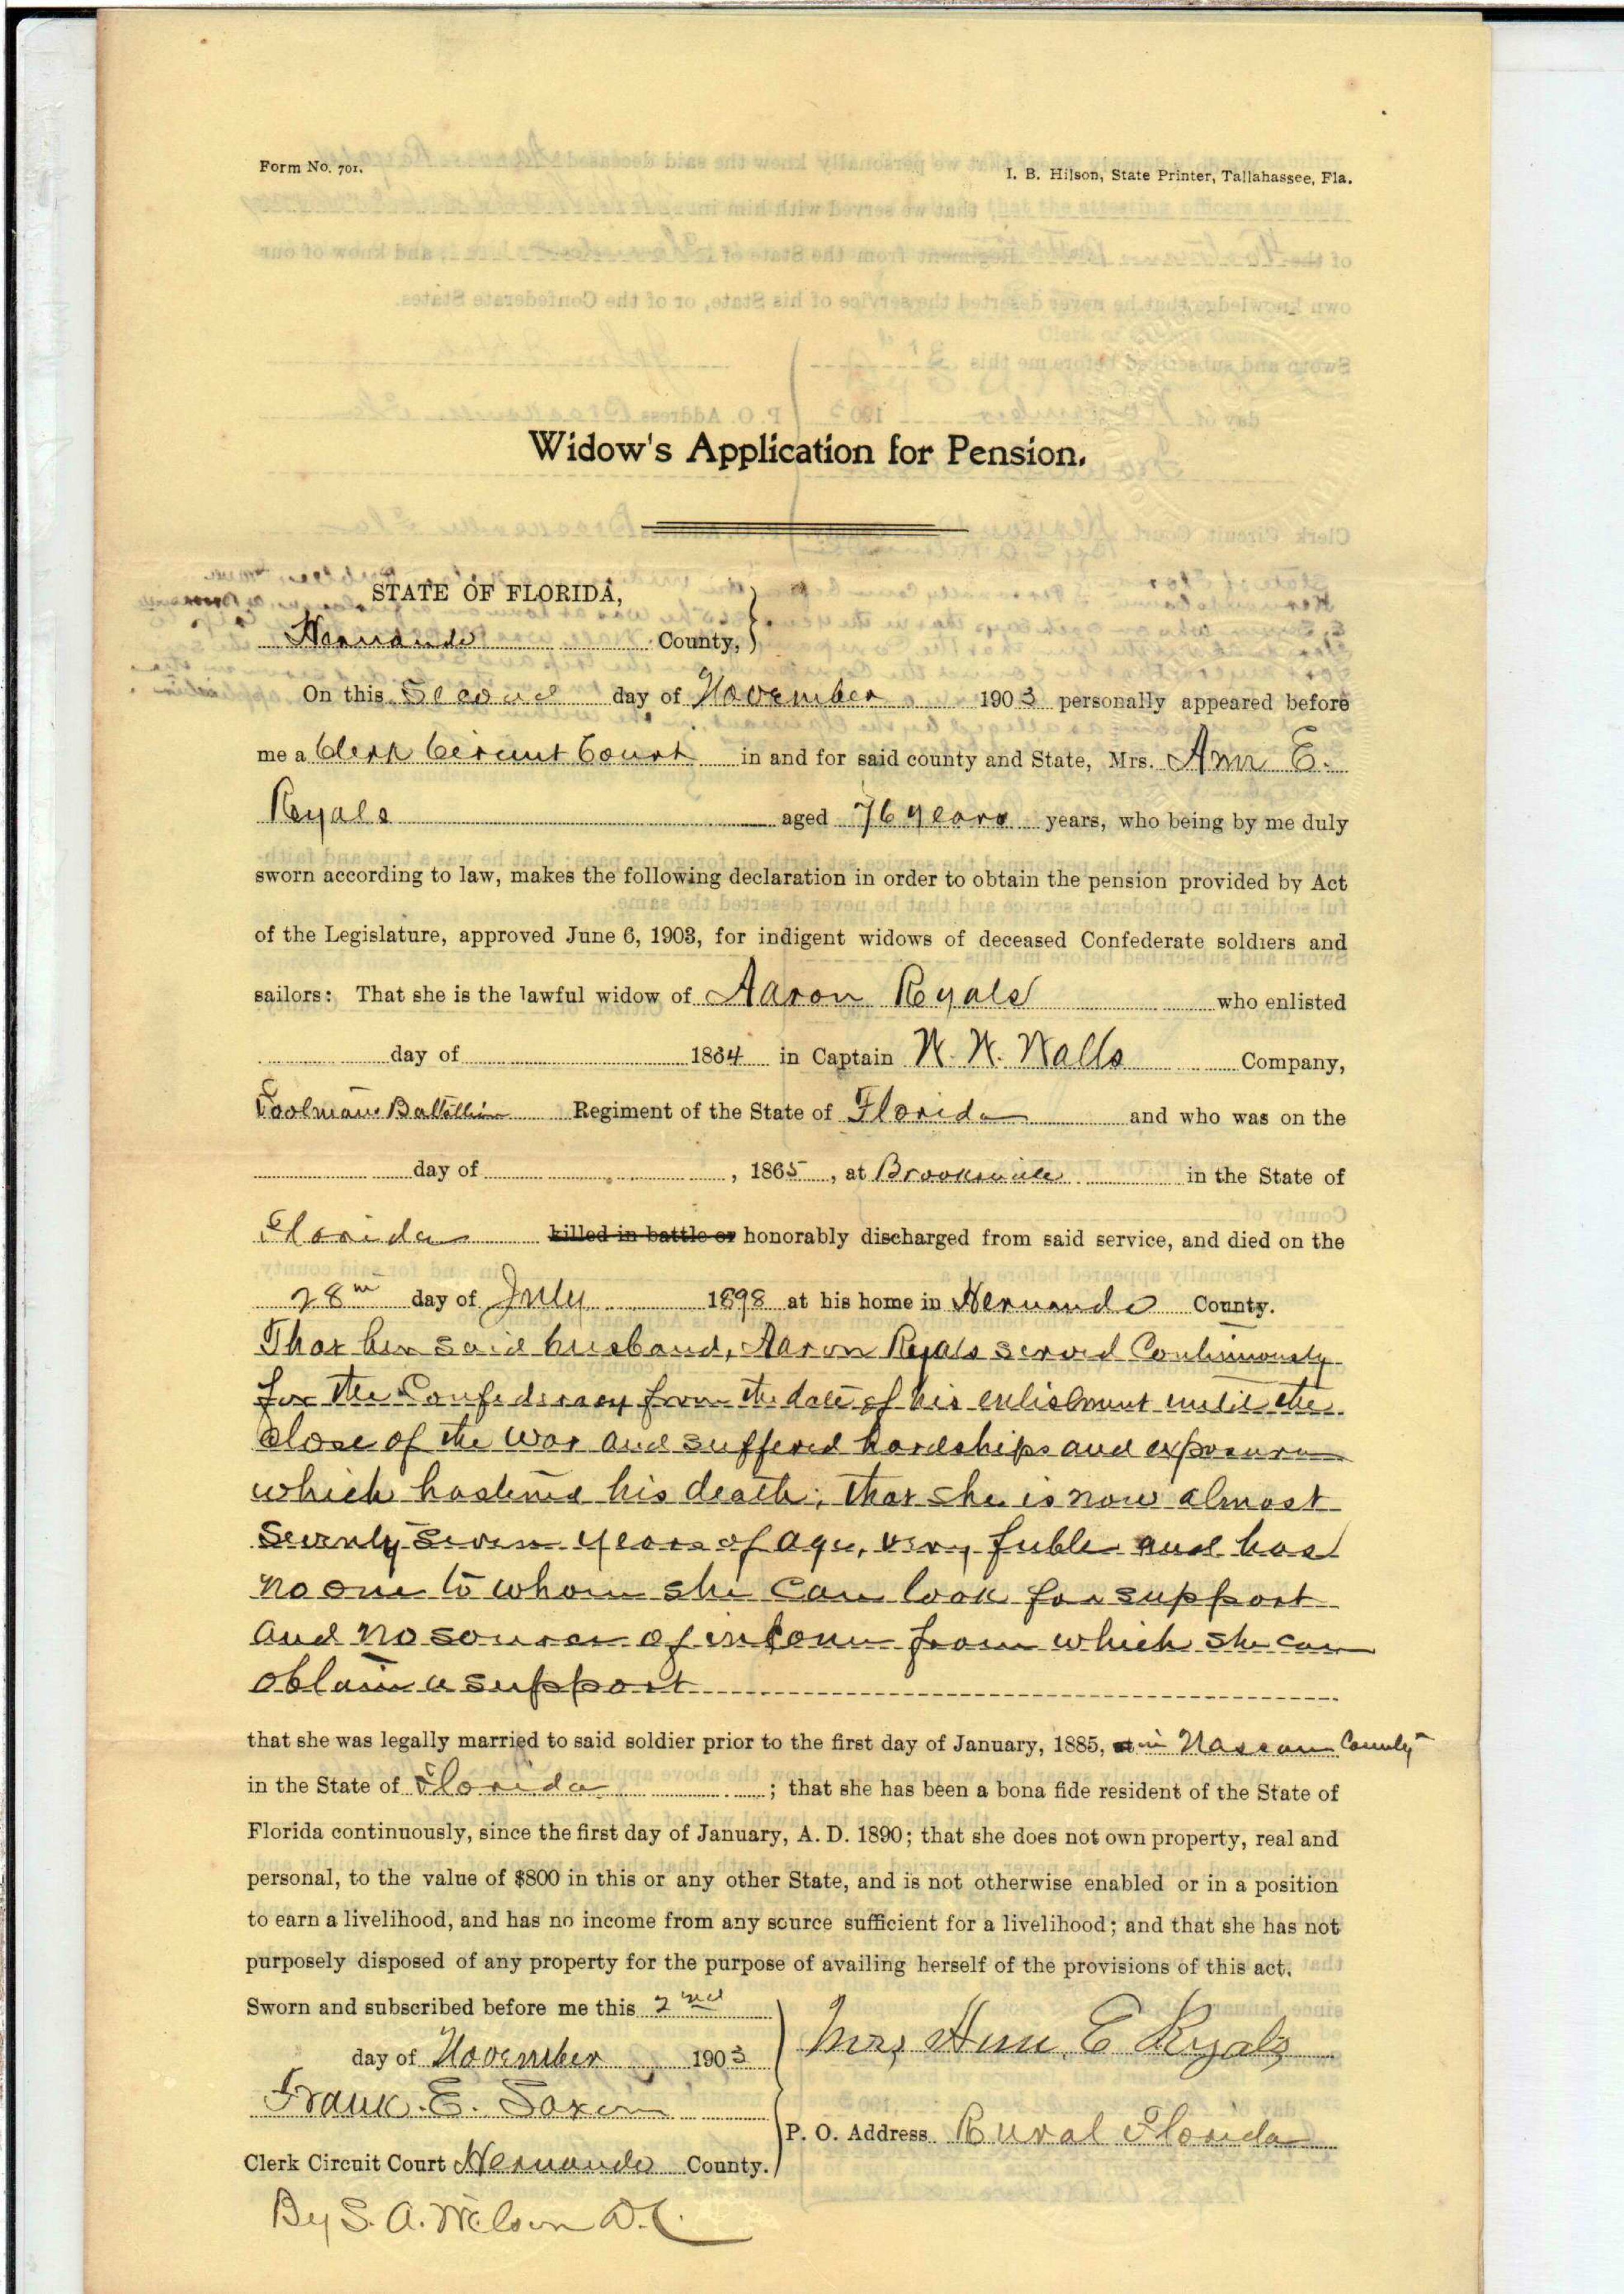 Form No. 701.
I. B. Hilson, State Printer, Tallahassee, Fla.
Widow's Application for Pension.
STATE OF FLORIDA,
Hernando County,
On this Second day of November 1903 personally appeared before
me a Clerk Circuit Court in and for said county and State, Mrs. Ann E.
Ryals aged 76 years years, who being by me duly
sworn according to law, makes the following declaration in order to obtain the pension provided by Act
of the Legislature, approved June 6, 1903, for indigent widows of deceased Confederate soldiers and
sailors: That she is the lawful widow of Aaron Ryals who enlisted
day of 1864 in Captain W. W. Walls Company,
Battallion Regiment of the State of Florida and who was on the
day of , 1865, at Brooksville in the State of
Florida killed in battle or honorably discharged from said service, and died on the
28th day of July 1898 at his home in Hernando County.
That her said husband, Aaron Ryals served Continuously
for the Confederacy from the date of his enlistment until the
close of the war and suffered hardships and exposure
which hastened his death; that she is now almost
Seventy Seven years of age, very feeble and has
no one to whom she can look for support
and no source of income from which she can
obtain a support
that she was legally married to said soldier prior to the first day of January, 1885, at in Nassau County
in the State of Florida ; that she has been a bona fide resident of the State of
Florida continuously, since the first day of January, A. D. 1890; that she does not own property, real and
personal, to the value of $800 in this or any other State, and is not otherwise enabled or in a position
to earn a livelihood, and has no income from any source sufficient for a livelihood; and that she has not
purposely disposed of any property for the purpose of availing herself of the provisions of this act.
Sworn and subscribed before me this 2nd
day of November 1903
Mrs, Ann. E Ryals
Frank. E. Saxon
P. O. Address Rural Florida
Clerk Circuit Court Hernando County.
By S. A. Wilson D.C.